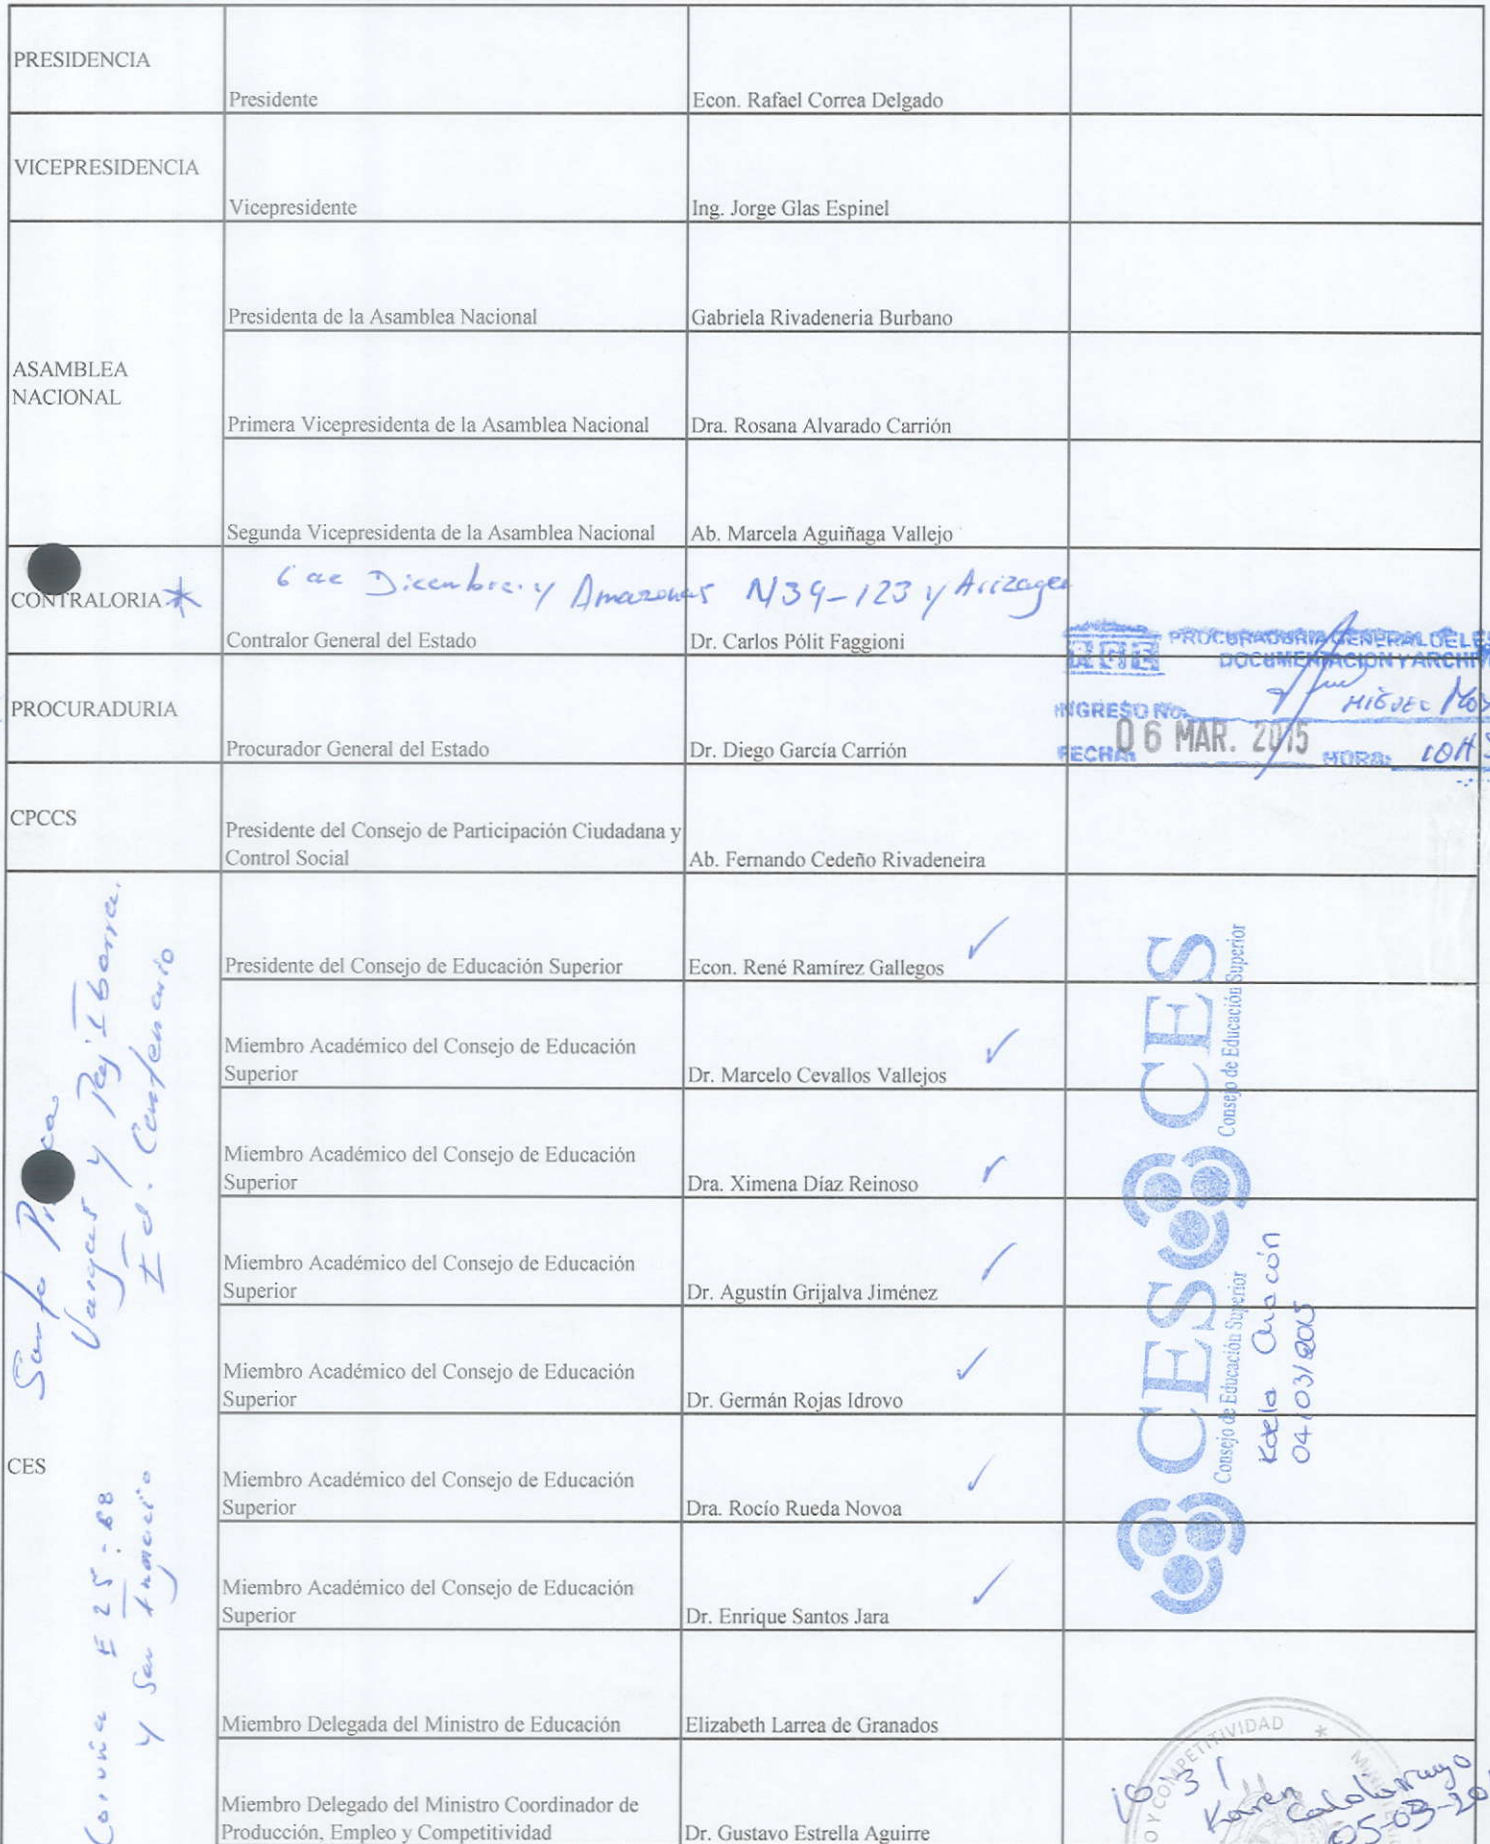 PRESIDENCIA
Presidente
Econ. Rafael Correa Delgado
VICEPRESIDENCIA
Vicepresidente
Ing. Jorge Glas Espinel
ASAMBLEA
NACIONAL
Presidenta de la Asamblea Nacional
Gabriela Rivadeneria Burbano
Primera Vicepresidenta de la Asamblea Nacional
Dra. Rosana Alvarado Carrión
Segunda Vicepresidenta de la Asamblea Nacional
Ab. Marcela Aguiñaga Vallejo
CONTRALORIA
6 de Dicembre y Amazonas N39-123 y Arizaga
Contralor General del Estado
Dr. Carlos Pólit Faggioni
PROCURADURIA GENERAL DEL
DOCUMENTACION Y
PROCURADURIA
Procurador General del Estado
Dr. Diego García Carrión
INGRESO No.
MIGUEL
FECHA: 06 MAR. 2015 HORA:
CPCCS
Presidente del Consejo de Participación Ciudadana y
Control Social
Ab. Fernando Cedeño Rivadeneira
CES
Santa
Vargas y
Ed. Centenario
Coruña E25-
y San Ignacio
Presidente del Consejo de Educación Superior
Econ. René Ramírez Gallegos
Miembro Académico del Consejo de Educación
Superior
Dr. Marcelo Cevallos Vallejos
Miembro Académico del Consejo de Educación
Superior
Dra. Ximena Díaz Reinoso
Miembro Académico del Consejo de Educación
Superior
Dr. Agustín Grijalva Jiménez
Miembro Académico del Consejo de Educación
Superior
Dr. Germán Rojas Idrovo
Miembro Académico del Consejo de Educación
Superior
Dra. Rocío Rueda Novoa
Miembro Académico del Consejo de Educación
Superior
Dr. Enrique Santos Jara
CES
Consejo de Educación Superior
CES
Consejo de Educación Superior
04/03/2015
Miembro Delegada del Ministro de Educación
Elizabeth Larrea de Granados
Miembro Delegado del Ministro Coordinador de
Producción, Empleo y Competitividad
Dr. Gustavo Estrella Aguirre
Y COMPETITIVIDAD
Karen